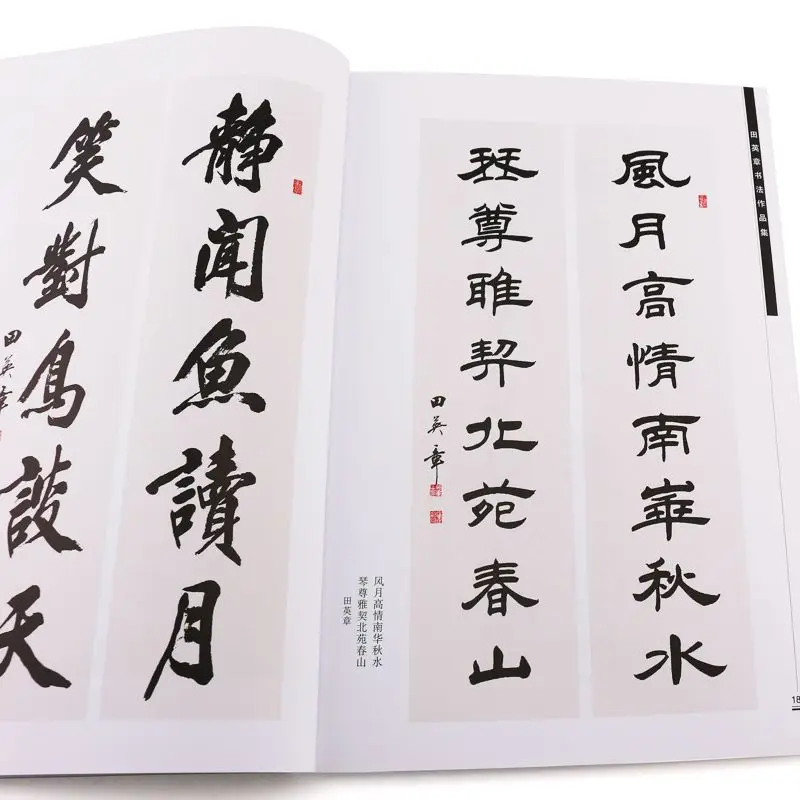 靜聞魚讀月
笑對鳥談天
田英章
風月高情南華秋水
琴尊雅契北苑春山
田英章
风月高情南华秋水
琴尊雅契北苑春山
田英章
田英章书法作品集